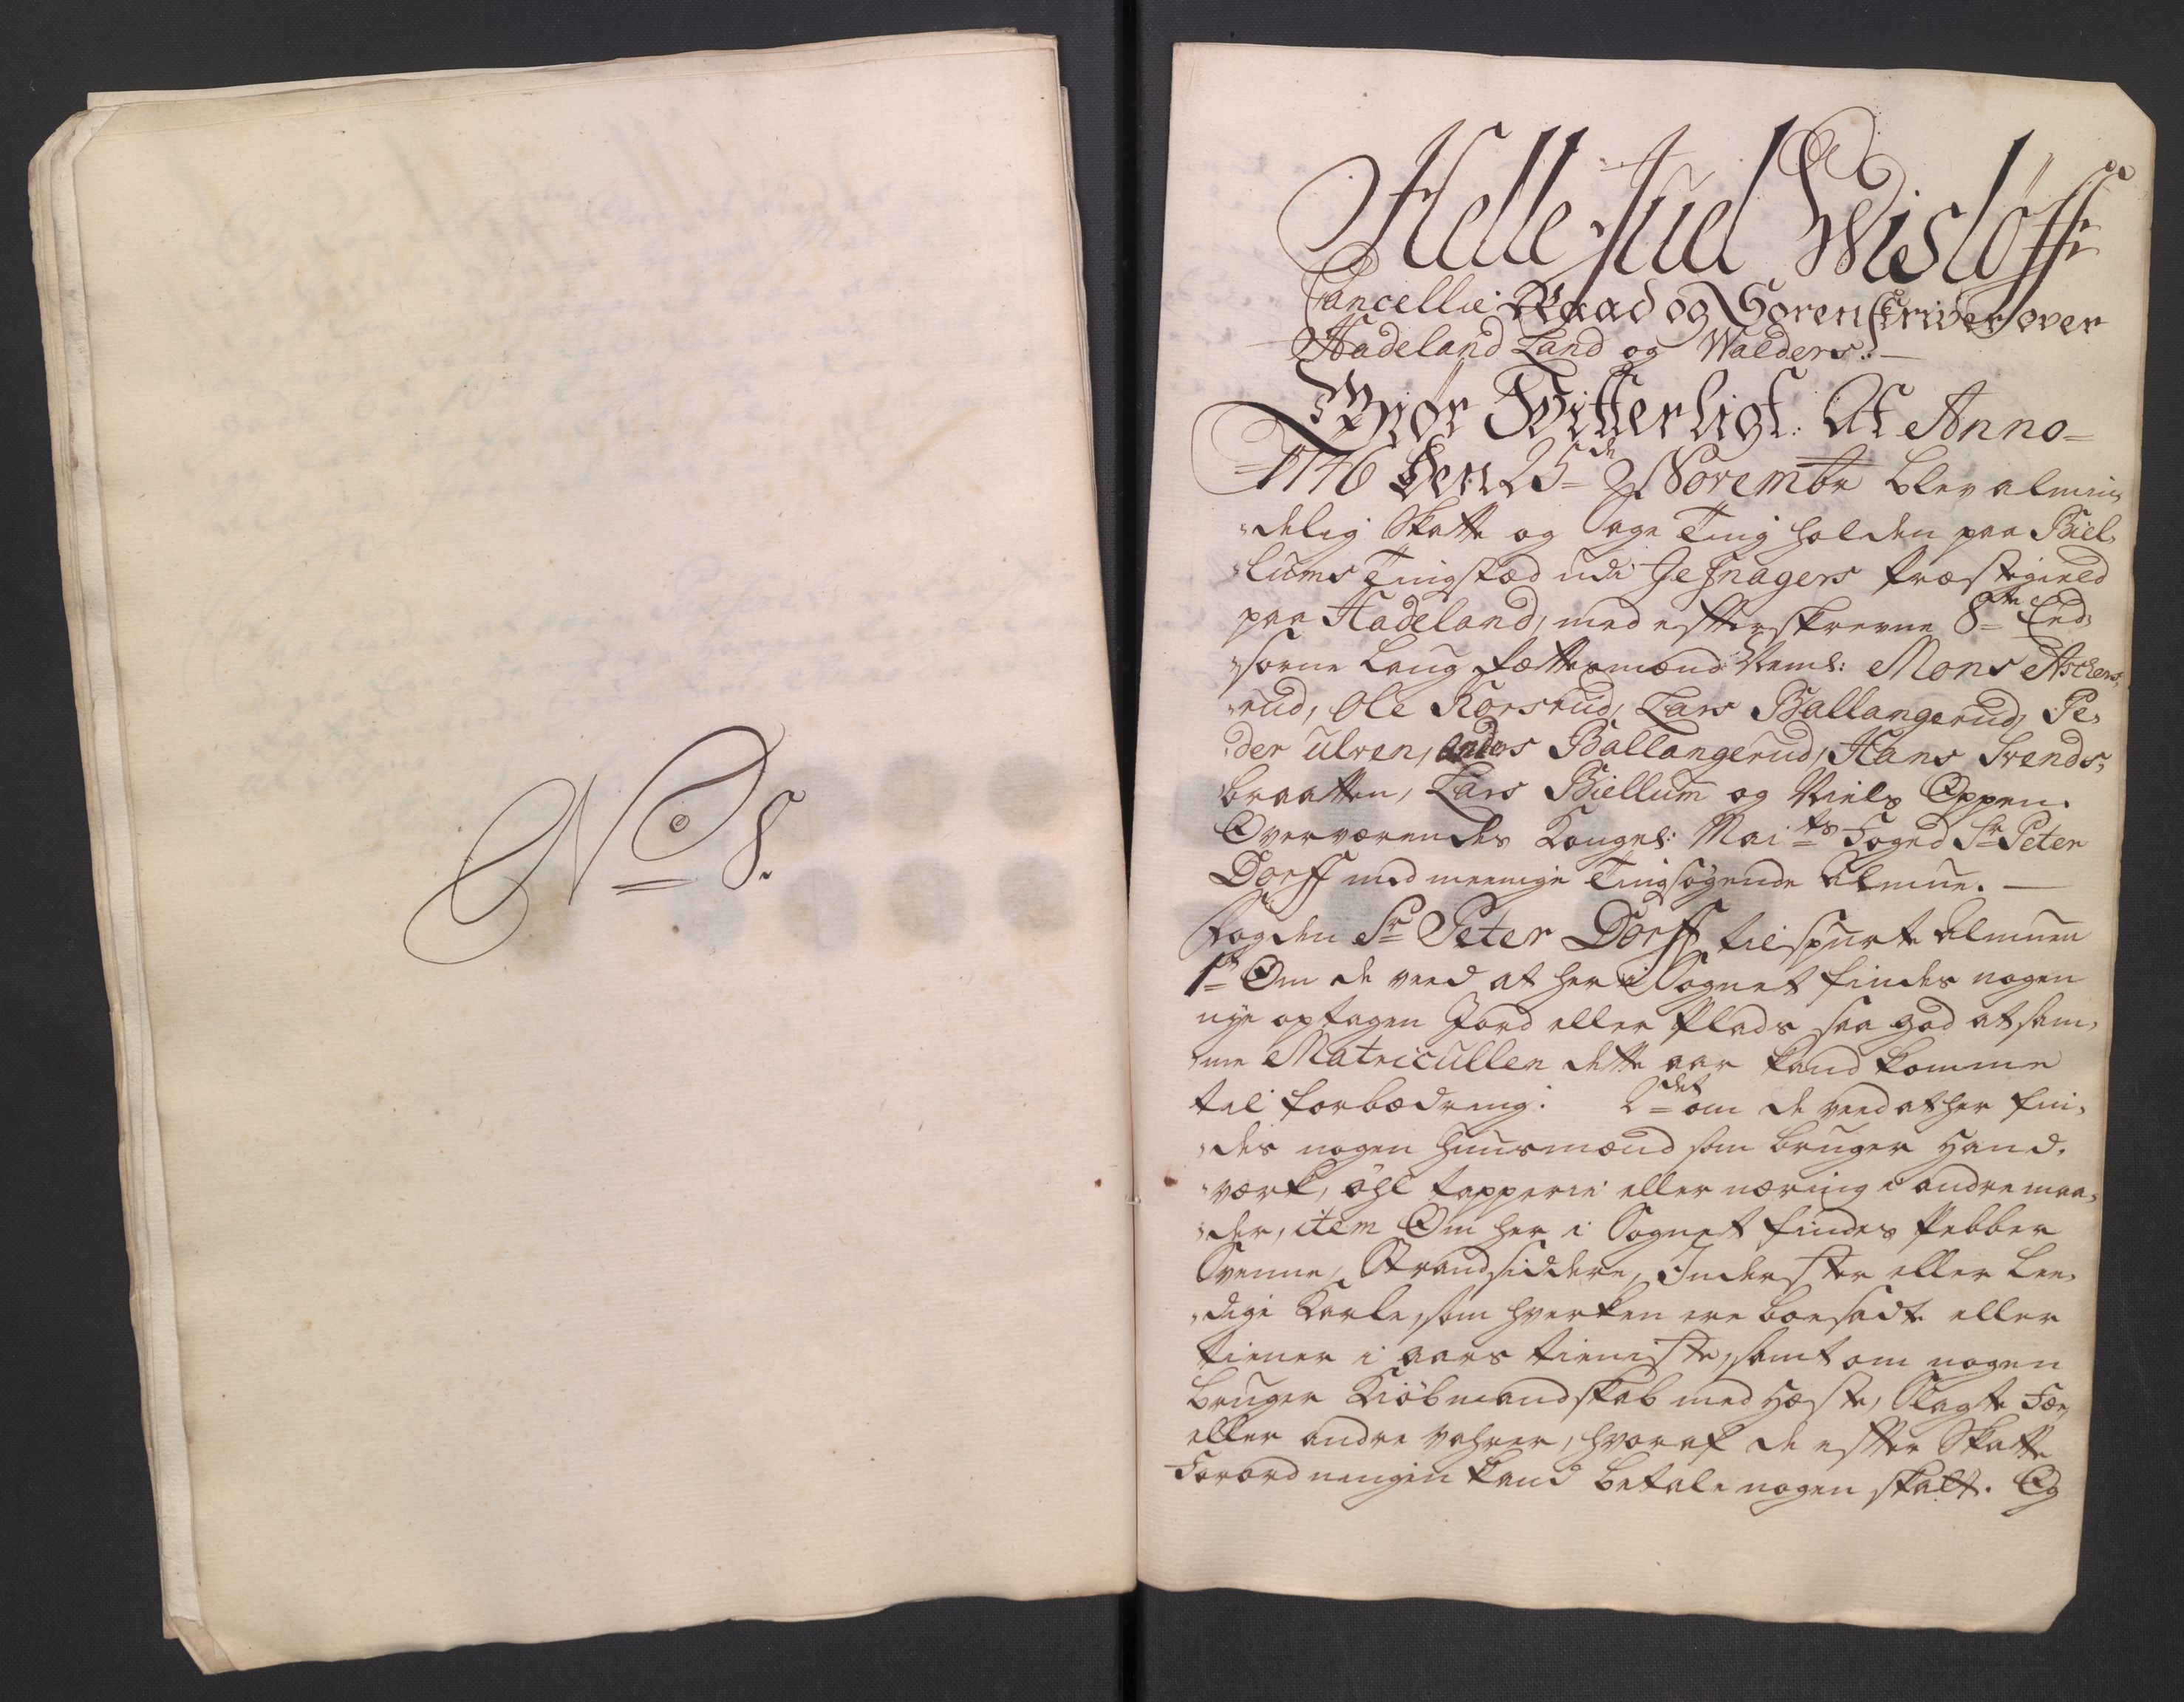 No 8.
Helle Juel Wisløff
Cancellie: Raad og Sorenskriver over
Hadeland Land og Walders. —
Giør Witterligt: At Anno=
=1746 Den 25de Novembr blev almin,
,delig Skatte og Sage Ting holden paa Biel,
,lums Tingstæd udi Jefnagers Præstegield
paa Hadeland, med efterskrevne 8te Eed,
,sorne Laug Rættesmænd Neml: Mons Ascher,
,rud, Ole Korsrud, Lars Ballangerud, Pe,
,der Ulven, Anders Ballangerud, Hans Svends,
braatten, Lars Biellum og Niels Oppen.
Overværendes Kongel: Maits Foged Sr Peter
Dorff med meenige Tingsøgende Almue. —
Fogden Sr Peter Dorff tilspurte Almuen
1st Om de veed at her i Sognet findes nogen
nye optagen Jord eller Plads saa god at sam,
,me Matricullen dette aar kand komme
til forbædring: 2det om de veed at her fin,
,des nogen Huusmænd som bruger Hand,
,værk, øhl tapperie eller næring i andre maa,
,der, item Om her i Sognet findes Pebber
Svenne, Strandsiddere, Inderster eller Lee,
,dige Karle, som hverken ere boesadt eller
tiener i aars tieniste, samt om nogen
bruger Kiøbmandskab med Hæste, Slagte Fæ,
eller andre vahrer, hvoraf de efter Skatte
Forordningen kand betale nogen skatt. Og